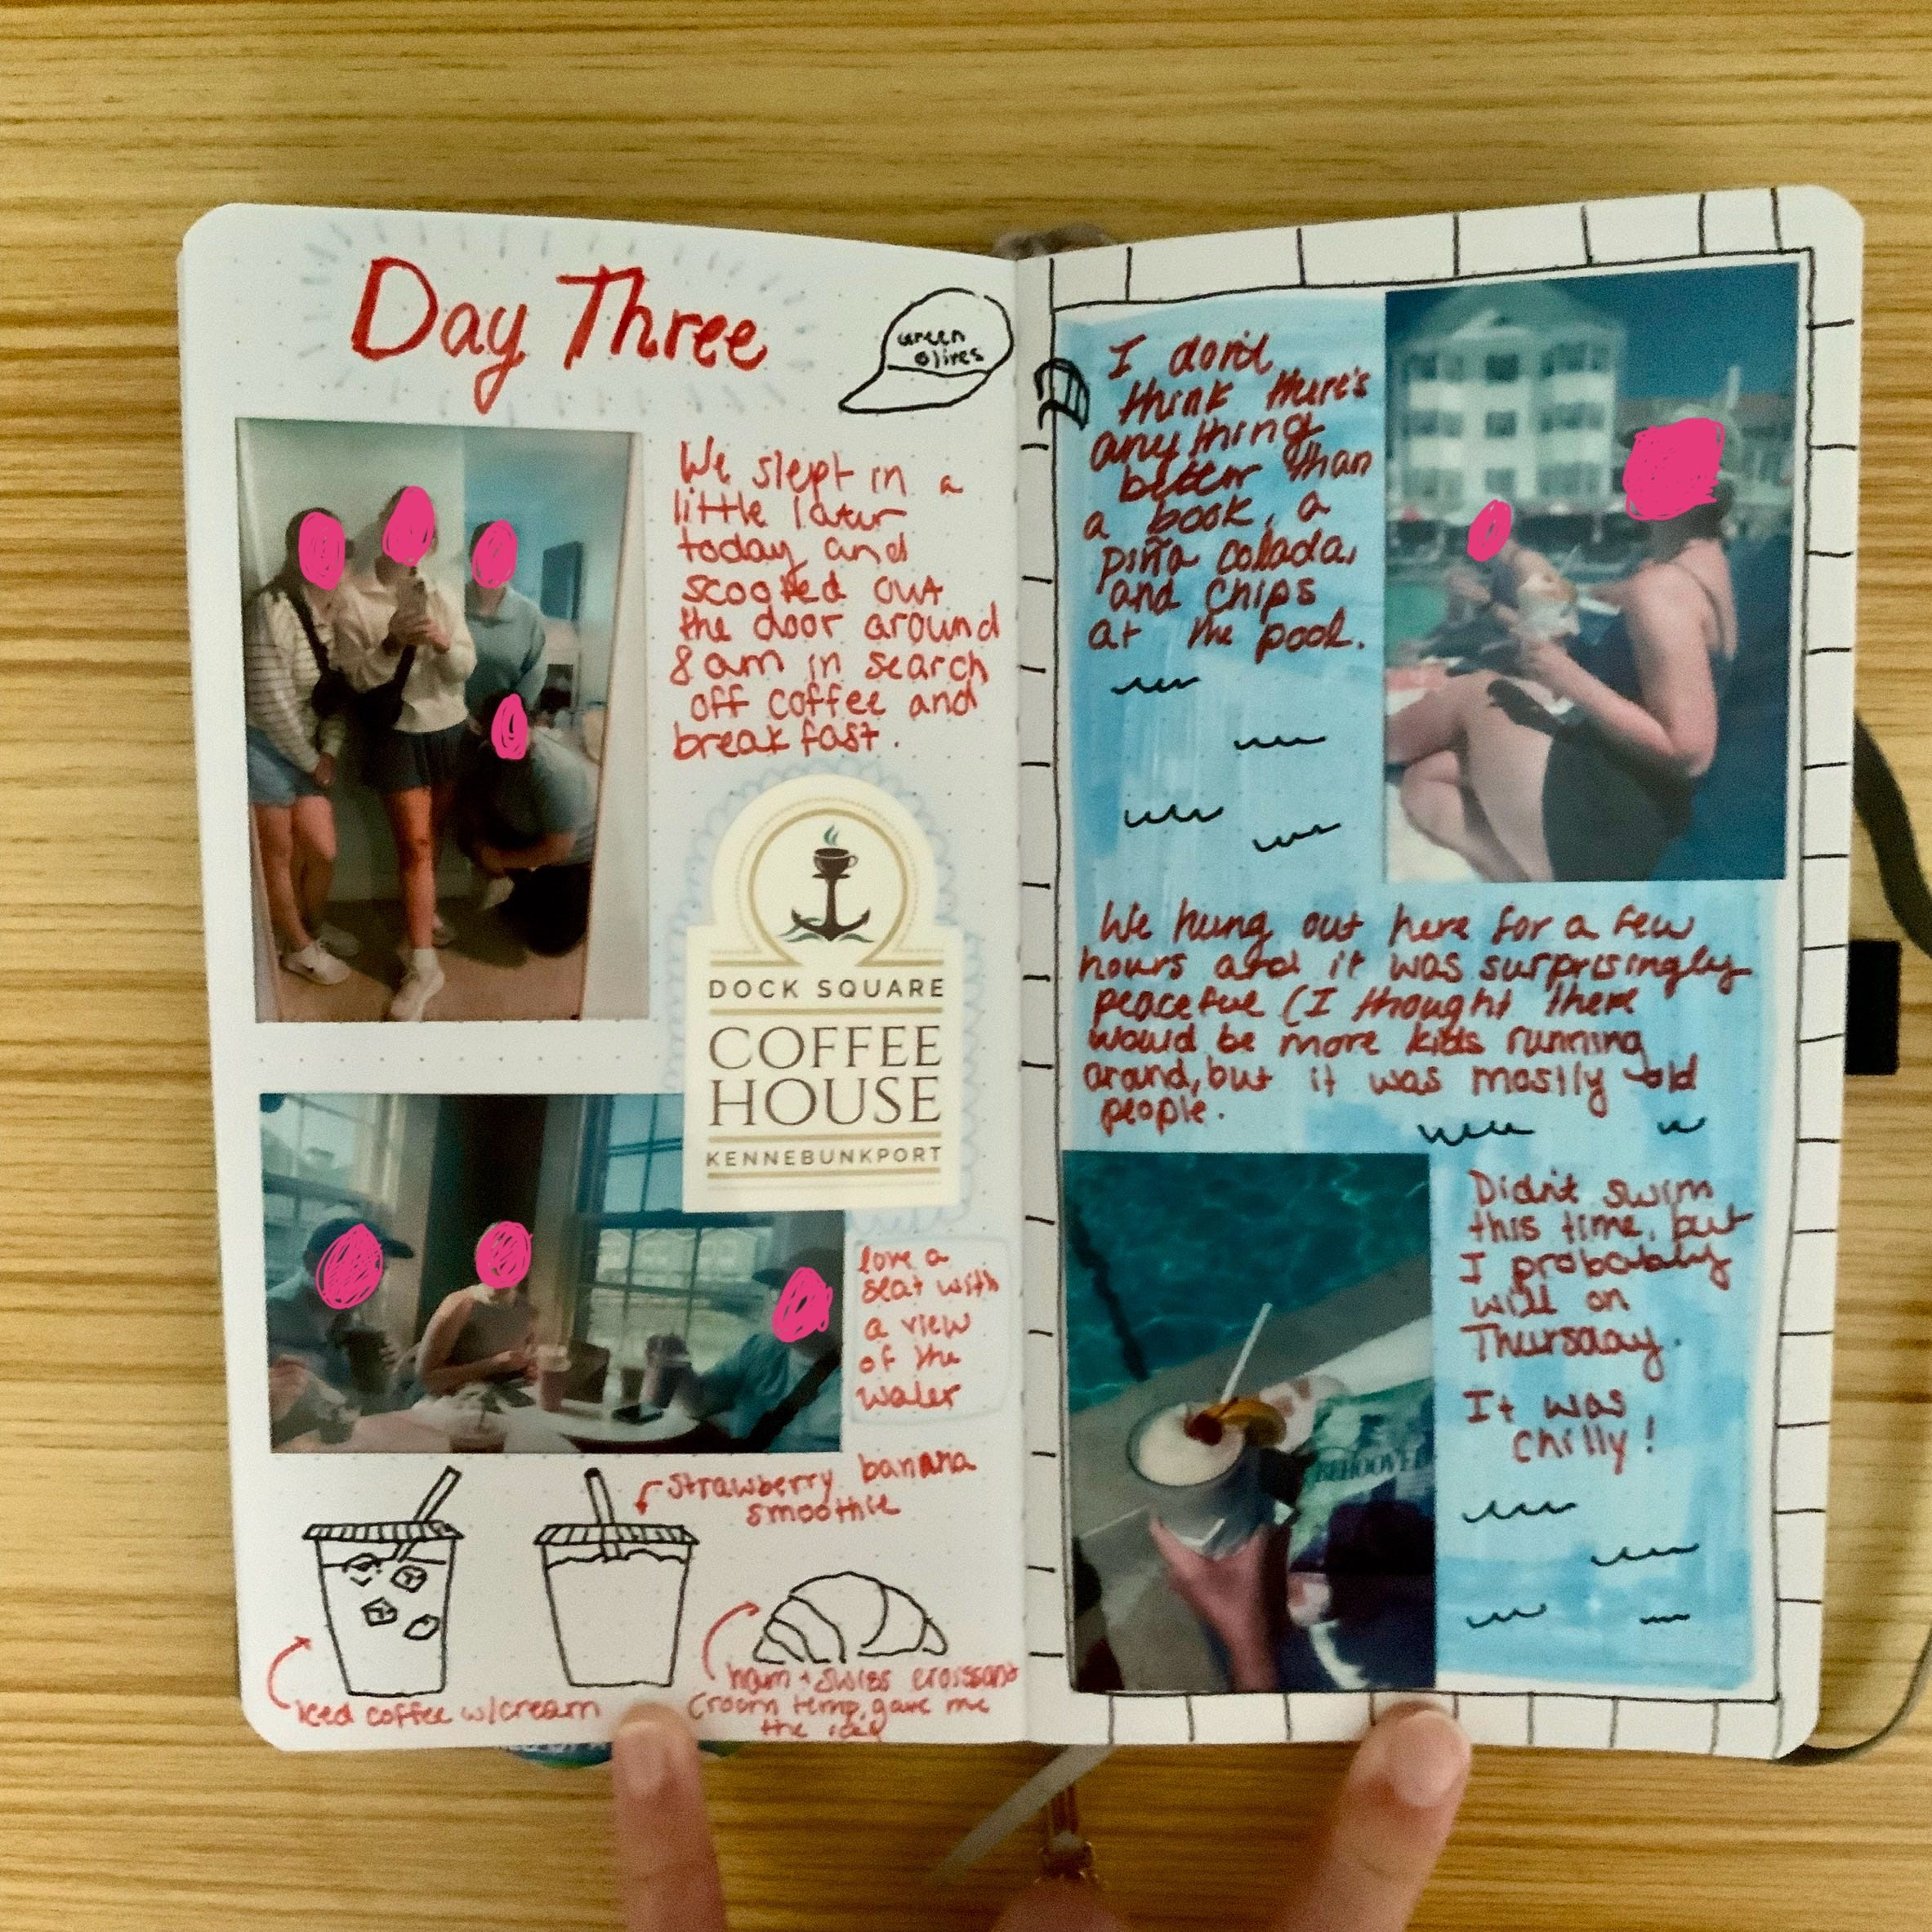 Day Three
Green
Olives
We slept in a
little later
today and
scooted out
the door around
8 am in search
off coffee and
breakfast.
DOCK SQUARE
COFFEE
HOUSE
KENNEBUNKPORT
love a
seat with
a view
of the
water
strawberry banana
smoothie
iced coffee w/cream
ham + swiss croissant
(room temp, gave me
the ick)
I don't
think there's
anything
better than
a book, a
piña colada,
and chips
at the pool.
We hung out here for a few
hours and it was surprisingly
peaceful (I thought there
would be more kids running
around, but it was mostly old
people.
Didn't swim
this time, but
I probably
will on
Thursday.
It was
chilly!
BEHOOVED